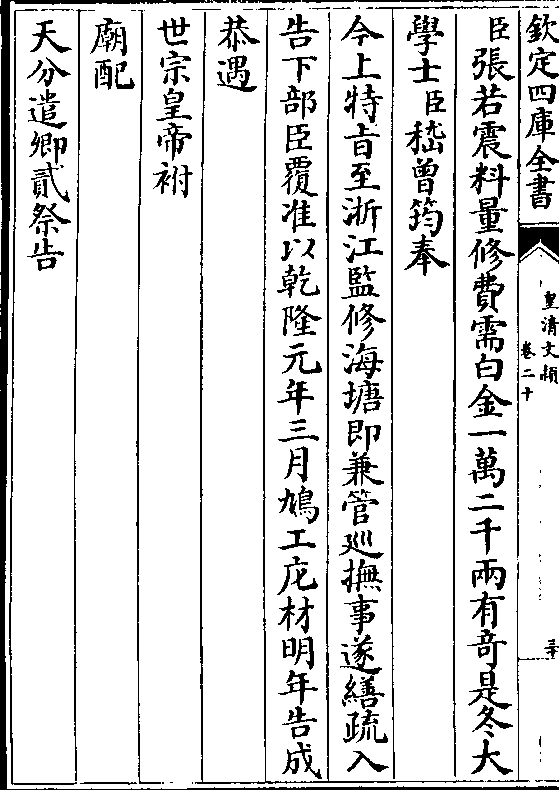 欽定四庫全書
皇清文穎
卷二十
三十
臣張若震料量修費需白金一萬二千兩有奇是冬大
學士臣嵇曾筠奉
今上特旨至浙江監修海塘即兼管廵撫事遂繕疏入
告下部臣覆准以乾隆元年三月鳩工庀材明年告成
恭遇
世宗皇帝祔
廟配
天分遣卿貳祭告